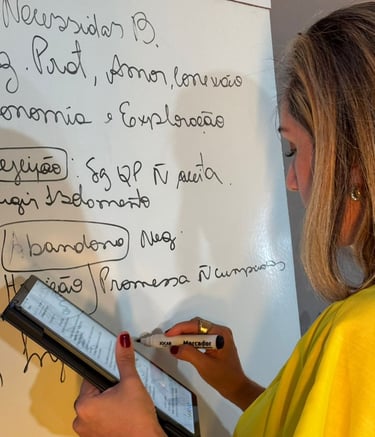 Necessidas B.
g. Prot, Amor, Conexão
onomia e Exploração
ejeição: Sg QP Ñ aceita.
ugir Isolamento
Abandono Neg.
Promessa Ñ cumpridas
JOCAR Marcador